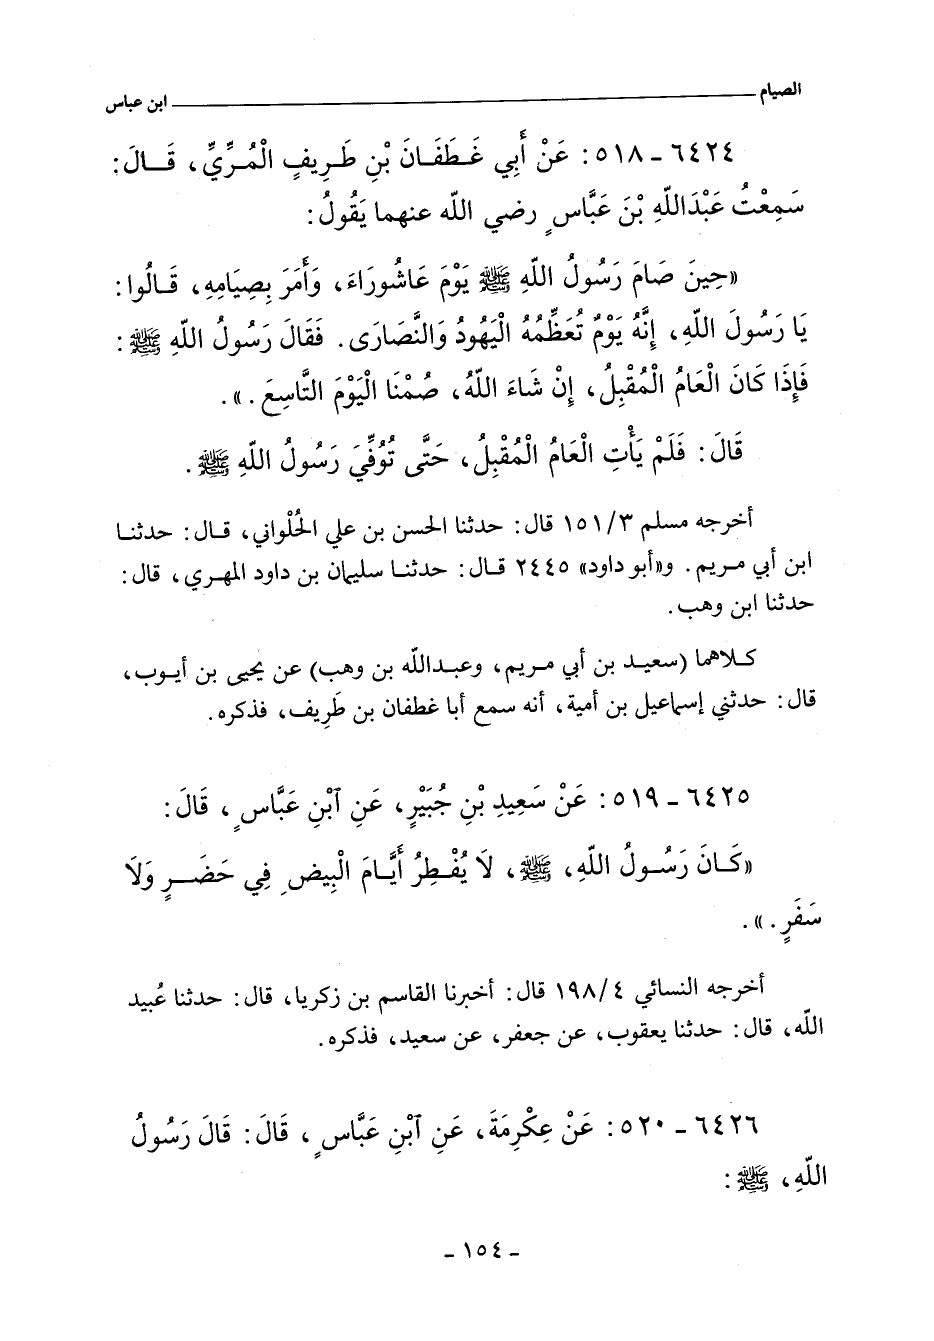 الصيام ـــــــــــ ابن عباس
٦٤٢٤ - ٥١٨: عَنْ أَبِي غَطَفَانَ بْنِ طَرِيفٍ الْمُرِّيِّ، قَالَ:
سَمِعْتُ عَبْدَاللّهِ بْنَ عَبَّاسٍ رضي الله عنهما يَقُولُ:
«حِينَ صَامَ رَسُولُ اللّهِ ﷺ يَوْمَ عَاشُورَاءَ، وَأَمَرَ بِصِيَامِهِ، قَالُوا:
يَا رَسُولَ اللّهِ، إِنَّهُ يَوْمٌ تُعَظِّمُهُ الْيَهُودُ وَالنَّصَارَى. فَقَالَ رَسُولُ اللّهِ ﷺ:
فَإِذَا كَانَ الْعَامُ الْمُقْبِلُ، إِنْ شَاءَ اللّهُ، صُمْنَا الْيَوْمَ التَّاسِعَ.».
قَالَ: فَلَمْ يَأْتِ الْعَامُ الْمُقْبِلُ، حَتَّى تُوُفِّيَ رَسُولُ اللّهِ ﷺ.
أخرجه مسلم ١٥١/٣ قال: حدثنا الحسن بن علي الحُلْواني، قال: حدثنا
ابن أبي مريم. و«أبو داود» ٢٤٤٥ قال: حدثنا سليمان بن داود المهري، قال:
حدثنا ابن وهب.
كلاهما (سعيد بن أبي مريم، وعبدالله بن وهب) عن يحيى بن أيوب،
قال: حدثني إسماعيل بن أمية، أنه سمع أبا غطفان بن طَرِيف، فذكره.
٦٤٢٥ - ٥١٩: عَنْ سَعِيدِ بْنِ جُبَيْرٍ، عَنِ ٱبْنِ عَبَّاسٍ، قَالَ:
«كَانَ رَسُولُ اللّهِ، ﷺ، لَا يُفْطِرُ أَيَّامَ الْبِيضِ فِي حَضَرٍ وَلَا
سَفَرٍ.».
أخرجه النسائي ١٩٨/٤ قال: أخبرنا القاسم بن زكريا، قال: حدثنا عُبيد
الله، قال: حدثنا يعقوب، عن جعفر، عن سعيد، فذكره.
٦٤٢٦ - ٥٢٠: عَنْ عِكْرِمَةَ، عَنِ ٱبْنِ عَبَّاسٍ، قَالَ: قَالَ رَسُولُ
اللّهِ، ﷺ:
- ١٥٤ -